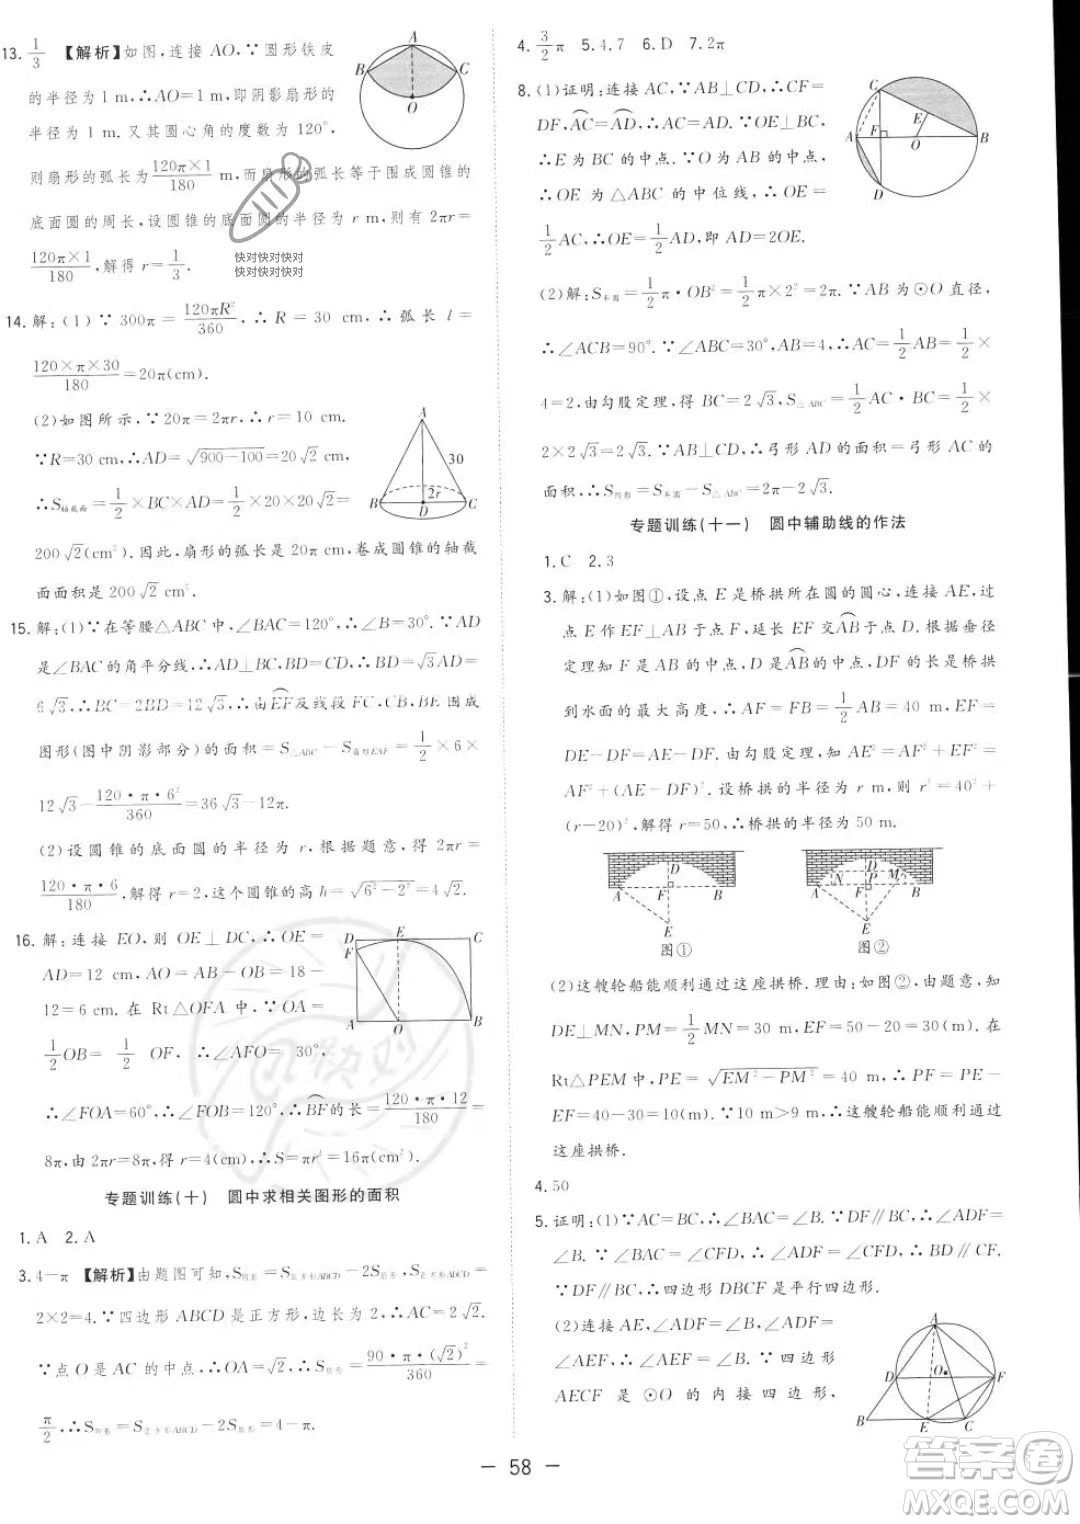 13. 1/3 【解析】如图,连接 AO,∵圆形铁皮
的半径为 1 m,∴AO=1 m,即阴影扇形的
半径为 1 m. 又其圆心角的度数为 120°,
则扇形的弧长为 120π×1/180 m,而扇形的弧长等于围成圆锥的
底面圆的周长,设圆锥的底面圆的半径为 r m,则有 2πr=
120π×1/180,解得 r=1/3.
A
B
C
O
快对快对快对
快对快对快对
14. 解:(1)∵300π=120πR²/360,∴R=30 cm,∴弧长 l=
120×π×30/180=20π(cm).
(2)如图所示,∵20π=2πr,∴r=10 cm.
∵R=30 cm,∴AD=√(900-100)=20√2(cm).
∴S轴截面=1/2×BC×AD=1/2×20×20√2=
200√2(cm²). 因此,扇形的弧长是 20π,卷成圆锥的轴截
面面积是 200√2 cm².
A
30
B
2r
D
C
15. 解:(1)∵在等腰△ABC 中,∠BAC=120°,∴∠B=30°. ∵AD
是∠BAC 的角平分线,∴AD⊥BC,BD=CD. ∴BD=√3AD=
6√3,∴BC=2BD=12√3,∴由EF⌒及线段 FC,CB,BE 围成
图形(图中阴影部分)的面积=S△ABC-S扇形EAF=1/2×6×
12√3-120·π·6²/360=36√3-12π.
(2)设圆锥的底面圆的半径为 r,根据题意,得 2πr=
120·π·6/180,解得 r=2,这个圆锥的高 h=√(6²-2²)=4√2.
16. 解:连接 EO,则 OE⊥DC,∴OE=
AD=12 cm,AO=AB-OB=18-
12=6(cm). 在 Rt△OFA 中,∵OA=
1/2OB=1/2OF,∴∠AFO=30°,
∴∠FOA=60°,∴∠FOB=120°,∴BF⌒的长=120·π·12/180=
8π,由 2πr=8π,得 r=4(cm),∴S=πr²=16π(cm²).
D
E
C
F
A
O
B
专题训练(十) 圆中求相关图形的面积
1. A 2. A
3. 4-π 【解析】由题图可知,S阴影=S正方形ABCD-2S扇形,S正方形ABCD=
2×2=4. ∵四边形 ABCD 是正方形,边长为 2,∴AC=2√2.
∵点 O 是 AC 的中点,∴OA=√2,∴S扇形=90·π·(√2)²/360=
π/2,∴S阴影=S正方形ABCD-2S扇形=4-π.
4. 3/2π 5. 4,7 6. D 7. 2π
8. (1)证明:连接 AC,∵AB⊥CD,∴CF=
DF,AC⌒=AD⌒,∴AC=AD. ∵OE⊥BC,
∴E 为 BC 的中点. ∵O 为 AB 的中点,
∴OE 为△ABC 的中位线,∴OE=
1/2AC,∴OE=1/2AD,即 AD=2OE.
(2)解:S半圆=1/2π·OB²=1/2π×2²=2π. ∵AB 为⊙O 直径,
∴∠ACB=90°. ∵∠ABC=30°,AB=4,∴AC=1/2AB=1/2×
4=2. 由勾股定理,得 BC=2√3,S△ABC=1/2AC·BC=1/2×
2×2√3=2√3. ∵AC=AD,∴弓形 AD 的面积=弓形 AC 的
面积,∴S阴影=S半圆-S△ABC=2π-2√3.
C
E
A
F
O
B
D
专题训练(十一) 圆中辅助线的作法
1. C 2. 3
3. 解:(1)如图①,设点 E 是桥拱所在圆的圆心,连接 AE,过
点 E 作 EF⊥AB 于点 F,延长 EF 交AB⌒于点 D. 根据垂径
定理知 F 是 AB 的中点,D 是AB⌒的中点,DF 的长是桥拱
到水面的最大高度,∴AF=FB=1/2AB=40 m,EF=
DE-DF=AE-DF. 由勾股定理,知 AE²=AF²+EF²=
AF²+(AE-DF)². 设桥拱的半径为 r m,则 r²=40²+
(r-20)²,解得 r=50,∴桥拱的半径为 50 m.
D
A
F
B
E
图①
D
N
P
M
A
F
B
E
图②
(2)这艘轮船能顺利通过这座拱桥. 理由:如图②,由题意,知
DE⊥MN,PM=1/2MN=30 m,EF=50-20=30(m). 在
Rt△PEM 中,PE=√(EM²-PM²)=40 m,∴PF=PE-
EF=40-30=10(m). ∵10 m>9 m,∴这艘轮船能顺利通过
这座拱桥.
4. 50
5. 证明:(1)∵AC=BC,∴∠BAC=∠B. ∵DF∥BC,∴∠ADF=
∠B. ∵∠BAC=∠CFD,∴∠ADF=∠CFD,∴BD∥CF.
∵DF∥BC,∴四边形 DBCF 是平行四边形.
(2)连接 AE,∵∠ADF=∠B,∠ADF=
∠AEF,∴∠AEF=∠B. ∵四边形
AECF 是⊙O 的内接四边形,
A
D
O
F
B
E
C
58
答案圈
MXQE.COM